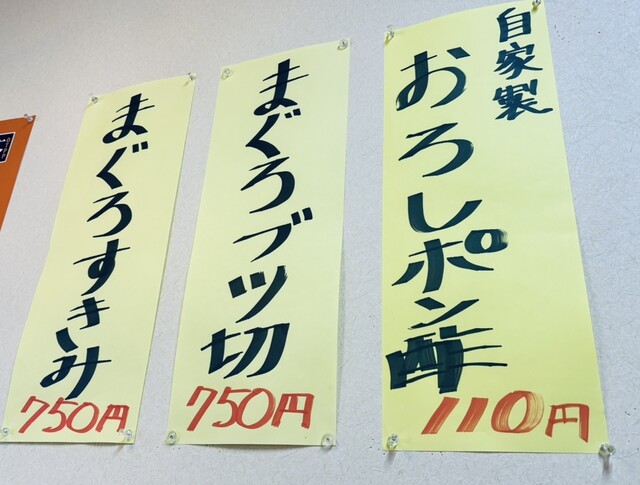 自家製
おろしポン酢
110円
まぐろブツ切
750円
まぐろすきみ
750円